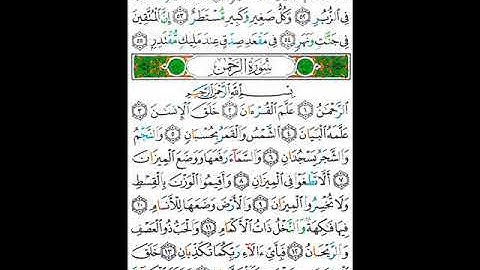 فِى ٱلزُّبُرِ ٥٢ وَكُلُّ صَغِيرٍ وَكَبِيرٍ مُّسْتَطَرٌ ٥٣ إِنَّ ٱلْمُتَّقِينَ
فِى جَنَّٰتٍ وَنَهَرٍ ٥٤ فِى مَقْعَدِ صِدْقٍ عِندَ مَلِيكٍ مُّقْتَدِرٍۭ ٥٥
سُورَةُ ٱلرَّحْمَٰن
بِسْمِ ٱللَّهِ ٱلرَّحْمَٰنِ ٱلرَّحِيمِ
ٱلرَّحْمَٰنُ ١ عَلَّمَ ٱلْقُرْءَانَ ٢ خَلَقَ ٱلْإِنسَٰنَ ٣
عَلَّمَهُ ٱلْبَيَانَ ٤ ٱلشَّمْسُ وَٱلْقَمَرُ بِحُسْبَانٍ ٥ وَٱلنَّجْمُ
وَٱلشَّجَرُ يَسْجُدَانِ ٦ وَٱلسَّمَآءَ رَفَعَهَا وَوَضَعَ ٱلْمِيزَانَ
٧ أَلَّا تَطْغَوْا۟ فِى ٱلْمِيزَانِ ٨ وَأَقِيمُوا۟ ٱلْوَزْنَ بِٱلْقِسْطِ
وَلَا تُخْسِرُوا۟ ٱلْمِيزَانَ ٩ وَٱلْأَرْضَ وَضَعَهَا لِلْأَنَامِ ١٠
فِيهَا فَٰكِهَةٌ وَٱلنَّخْلُ ذَاتُ ٱلْأَكْمَامِ ١١ وَٱلْحَبُّ ذُو ٱلْعَصْفِ
وَٱلرَّيْحَانُ ١٢ فَبِأَىِّ ءَالَآءِ رَبِّكُمَا تُكَذِّبَانِ ١٣ خَلَقَ